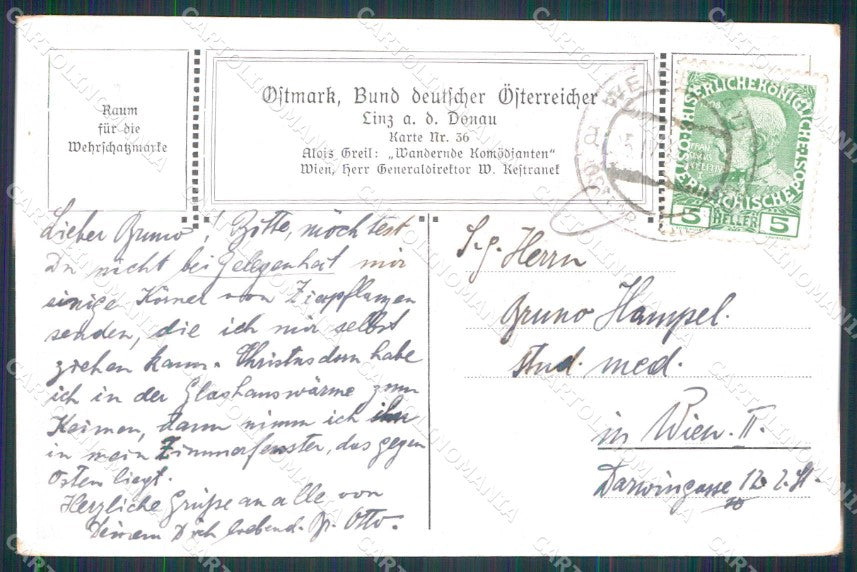 Raum
für die
Wehrschatzmarke
Ostmark, Bund deutscher Österreicher
Linz a. d. Donau
Karte Nr. 36
Alois Greil: „Wandernde Komödianten"
Wien, Herr Generaldirektor W. Kestranek
5
HELLER
5
Lieber Bruno! Bitte, möchtest
Du nicht bei Gelegenheit mir
einige Körner von Zierpflanzen
senden, die ich mir selbst
ziehen kann. Christusdorn habe
ich in der Glashauswärme zum
Keimen, dann nimm ich ihn
in mein Zimmerfenster, das gegen
Osten liegt.
Herzliche Grüße an alle von
Deinem Dich liebend. Otto.
S. g. Herrn
Bruno Hampel.
stud. med.
in Wien. II.
Darwingasse
CARTOLINOMANIA